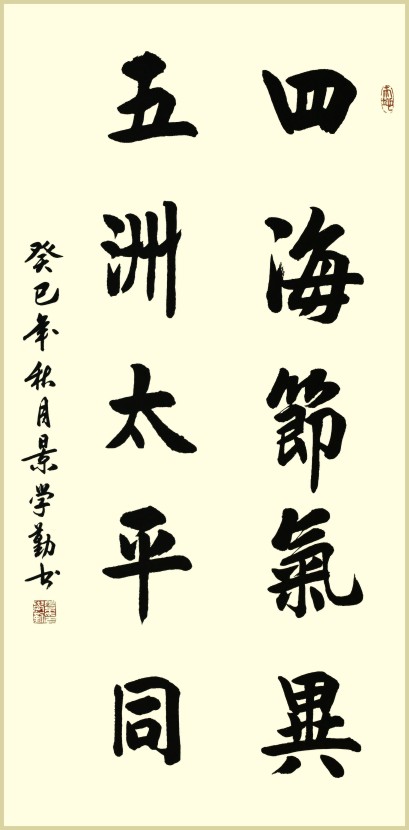 四海節氣異
五洲太平同
癸巳年秋月景学勤书